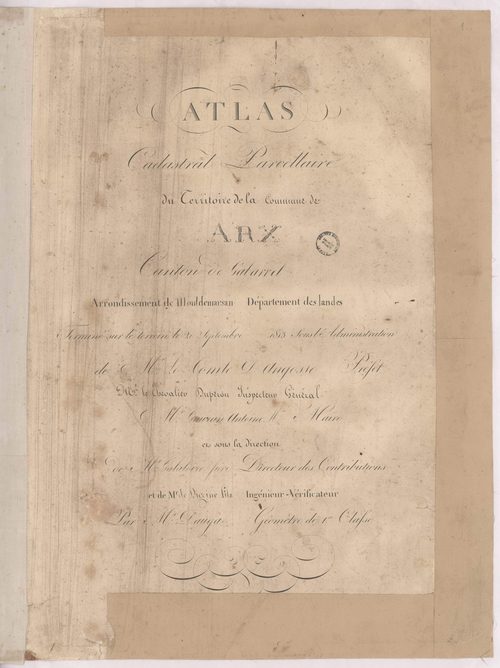 ATLAS
Cadastral Parcellaire
du Territoire de la Commune de
ARX
Canton de Gabarret
Arrondissement de Montdemarsan Département des landes
Terminé sur le terrein le 20 Septembre Sous l'Administration
de Mr Le Comte D'Angosse Préfet
Mr. le Chevalier Dupérou Inspecteur Général
Mr. Antoine Maire
et sous la direction
de Mr. père Directeur des Contributions
et de Mr. fils Ingénieur-Vérificateur
Par Mr. Dauga Géomètre de 1re Classe